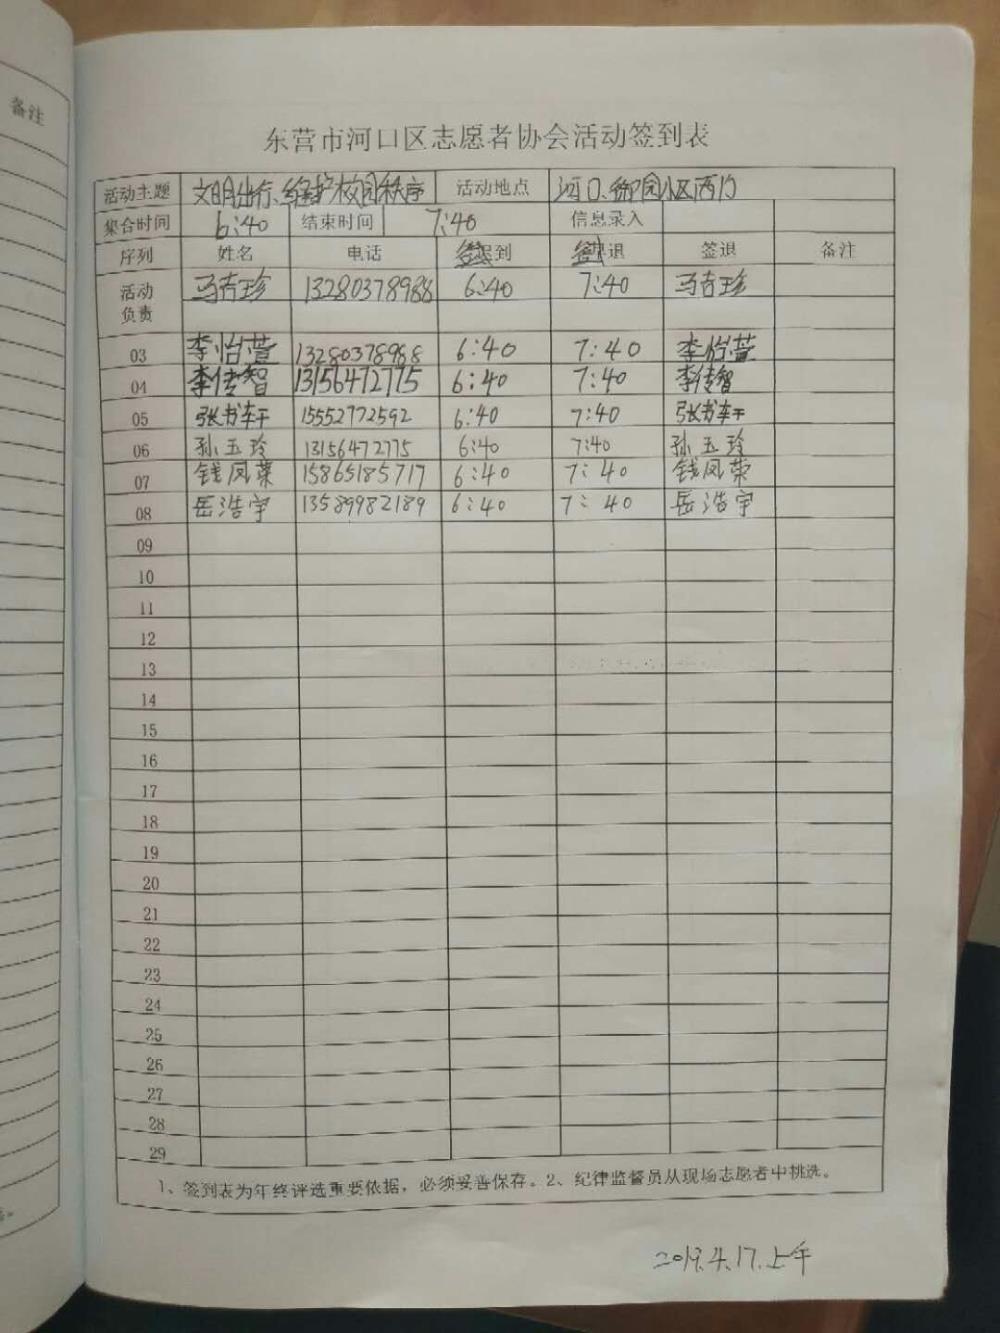 备注
东营市河口区志愿者协会活动签到表
活动主题 文明出行、维护校园秩序 活动地点 河口、御园小区西门
集合时间 6:40 结束时间 7:40 信息录入
序列 姓名 电话 到 退 签退 备注
活动负责 马吉珍 13280378988 6:40 7:40 马吉珍
03 李怡萱 13280378988 6:40 7:40 李怡萱
04 李传智 13156472775 6:40 7:40 李传智
05 张书轩 15552772592 6:40 7:40 张书轩
06 孙玉玲 13156472775 6:40 7:40 孙玉玲
07 钱凤荣 15865185717 6:40 7:40 钱凤荣
08 岳浩宇 13589982189 6:40 7:40 岳浩宇
09
10
11
12
13
14
15
16
17
18
19
20
21
22
23
24
25
26
27
28
29
1、签到表为年终评选重要依据，必须妥善保存。2、纪律监督员从现场志愿者中挑选。
2019.4.17.上午